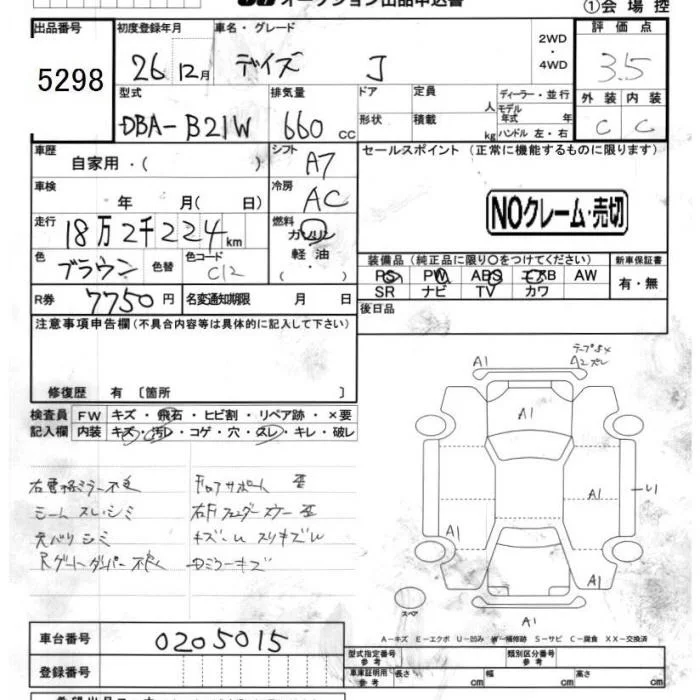 オークション出品申込書
①会場控
出品番号 初度登録年月 車名・グレード 2WD・4WD 評価点
5298 26 12月 デイズ J 3.5
型式 排気量 ドア 定員 人 ディーラー・並行 外装 内装
DBA-B21W 660cc 形状 積載 kg モデル年式 年 ハンドル 左・右 C C
車歴 自家用・( ) シフト A7 セールスポイント (正常に機能するものに限ります)
車検 年 月( 日) 冷房 AC
NOクレーム・売切
走行 18万2千224km 燃料 ガソリン 軽油・( )
色 ブラウン 色替 色コード C12
装備品 (純正品に限り○をつけてください) 新車保証書
PS PW ABS エアB AW 有・無
SR ナビ TV カワ
R券 7750円 名変通知期限 月 日
後日品
注意事項申告欄(不具合内容等は具体的に記入して下さい)
修復歴 有 〔箇所 〕
検査員記入欄 FW キズ・飛石・ヒビ割・リペア跡・×要
内装 キズ・汚レ・コゲ・穴・スレ・キレ・破レ
シートスレ・シミ
天バリシミ キズ・U スリキズU
A1
A2 ズレ
A1
A1
U1
A1
A1
A1
スペア
A-キズ E-エクボ U-凹み W-補修跡 S-サビ C-腐食 XX-交換済
車台番号 0205015
登録番号
型式指定番号 参考 類別区分番号 参考
車庫証明用 参考 長さ cm 幅 cm 高さ cm